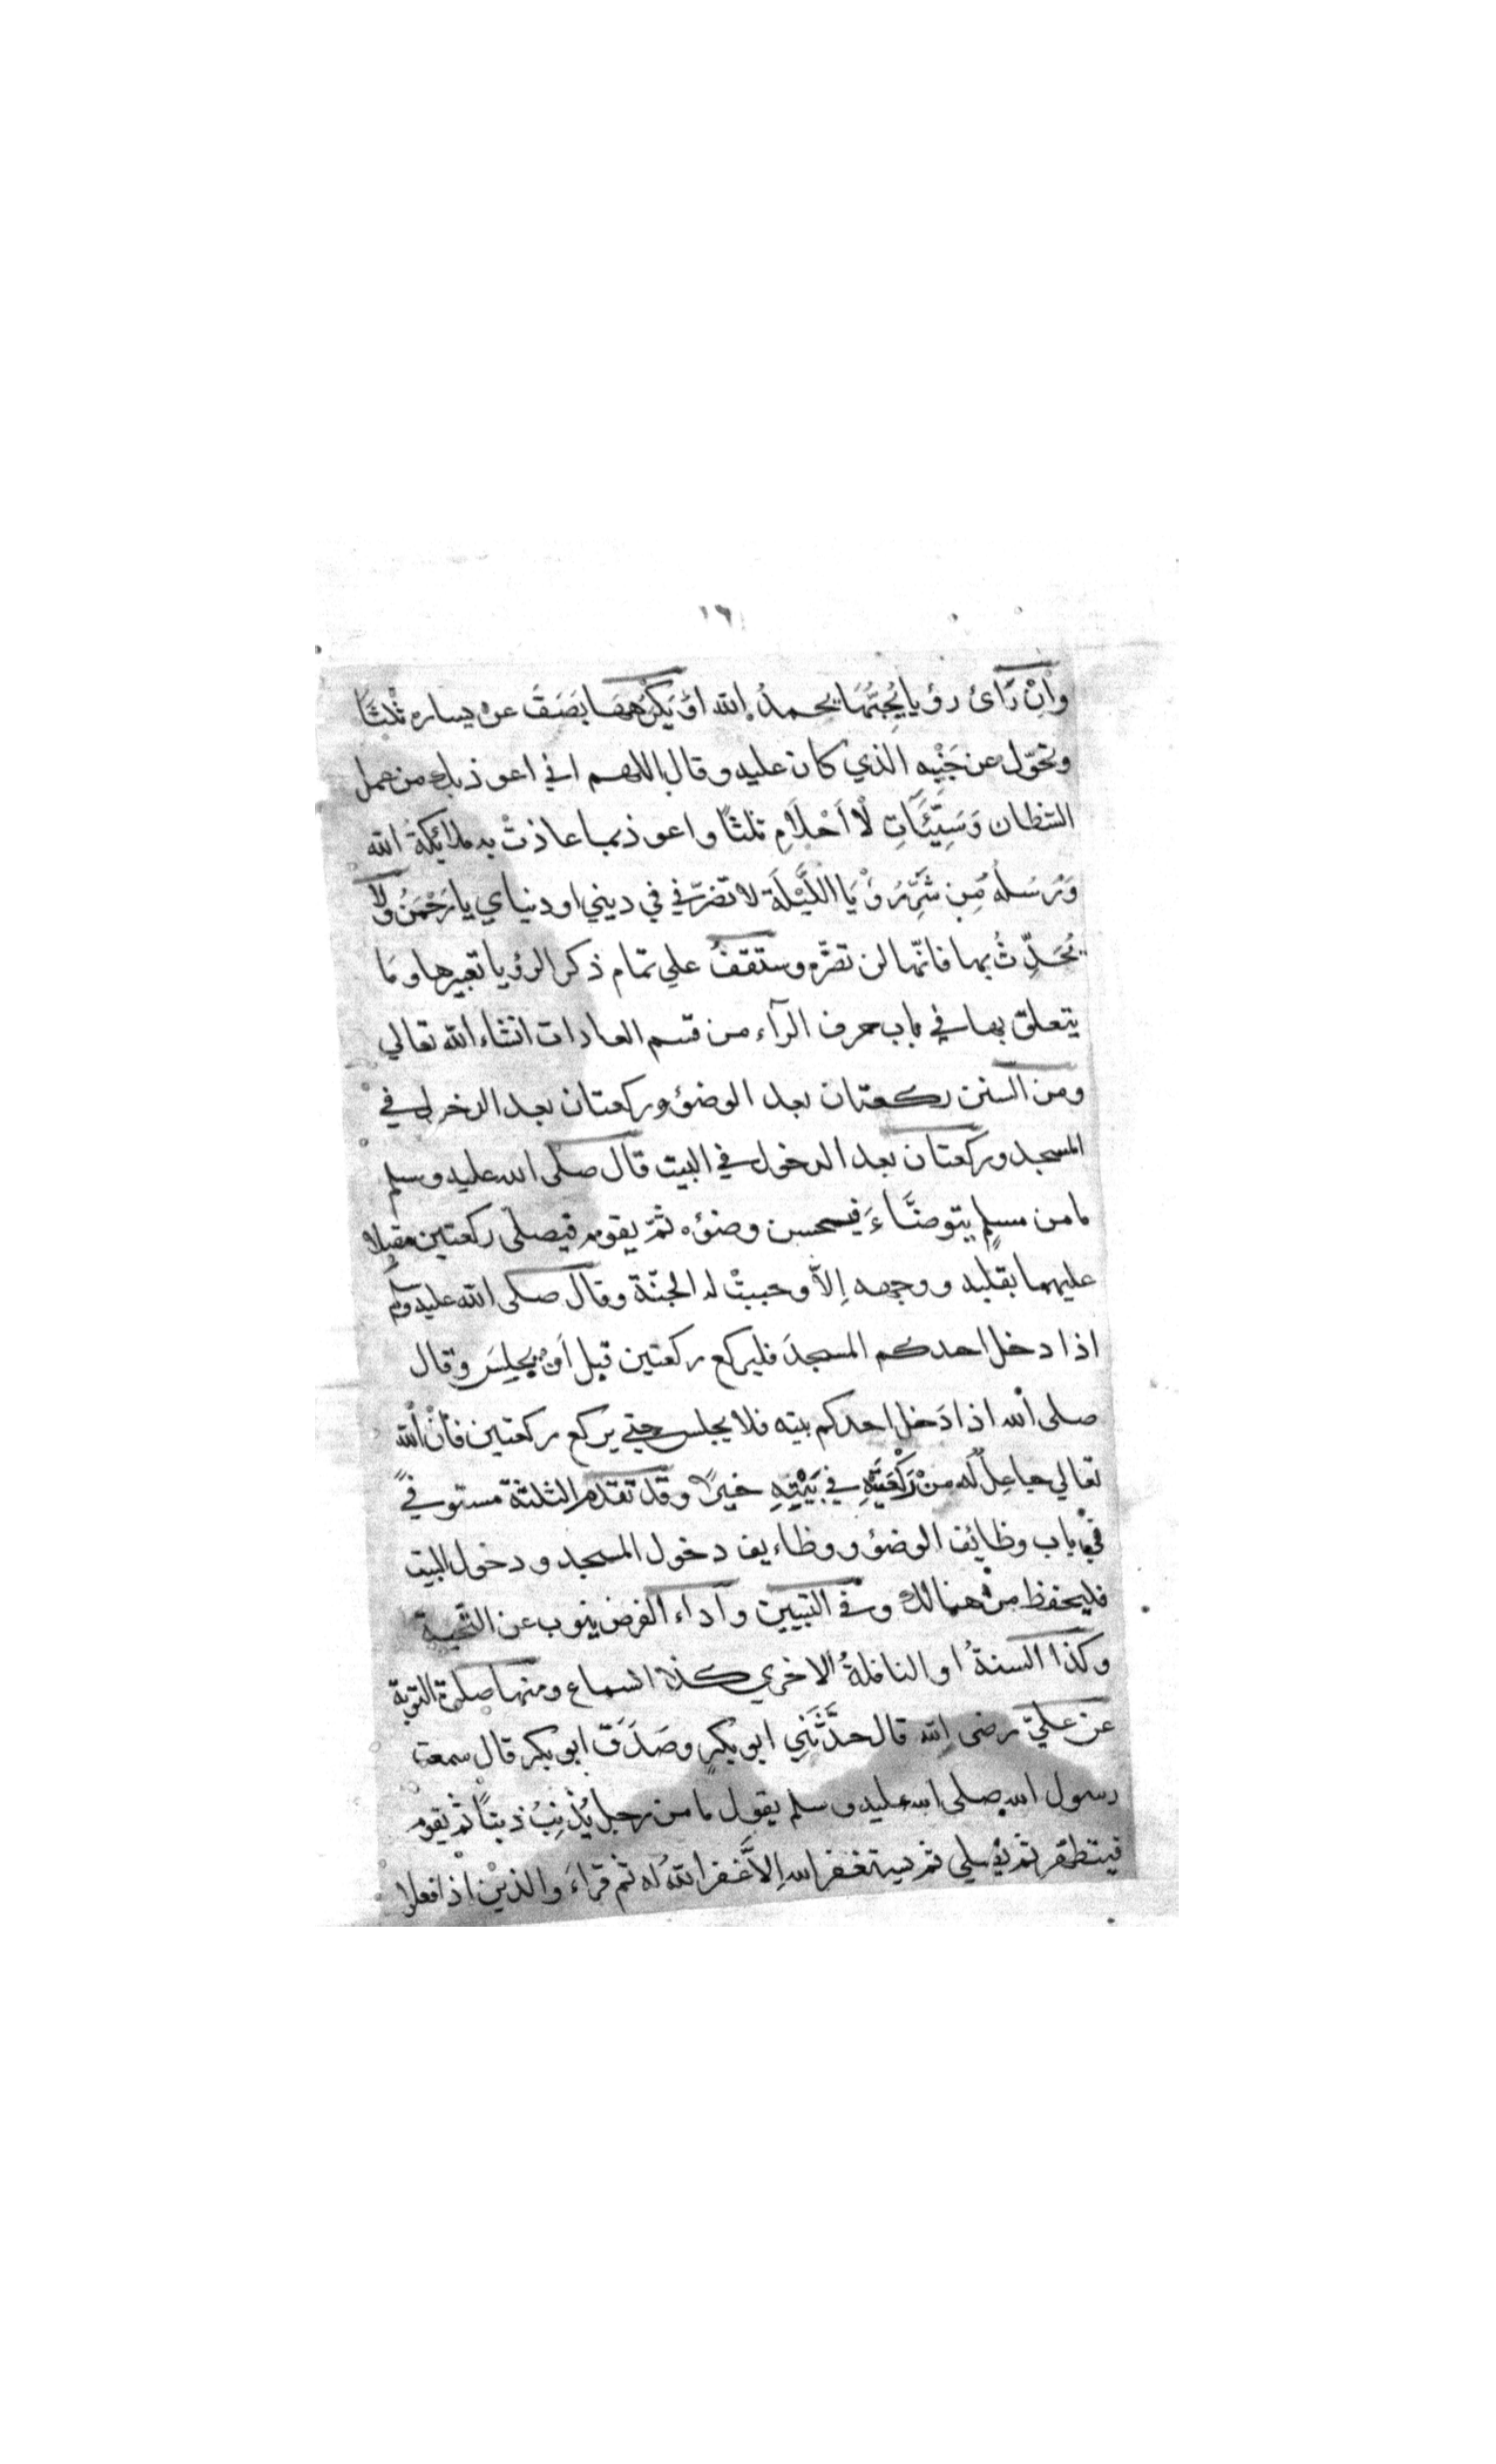 ١٦
وَاِنْ رَأىٰ رؤيا يُحِبُّهَا يحمدُ الله اوْ يَكْرَهُهَا بَصَقَ عن يساره ثلثًا
وتحوّل عن جَنْبِهِ الذي كان عليه وقال اللهم اني اعوذ بك من عمل
الشطان وَسَيِّئَاتِ لْاَحْلَامِ ثلثًا واعوذ بما عاذتْ به ملائكةُ الله
وَرُسُلُهُ مِن شَرِّ رُؤْيَا اللَّيْلَة لا تضرّني في ديني او دنياي يا رَحْمٰنُ ولا
يُحَدِّثُ بها فانّها لن تضرّه وستقفُ علي تمام ذكر الرؤيا تعبيرها ومَا
يتعلق بها في باب حرف الرآء من قسم العادات انشاء الله تعالي
ومن السنن ركعتان بعد الوضوء وركعتان بعد الدخول في
المسجد وركعتان بعد الدخول في البيت قال صلى الله عليه وسلم
ما من مسلمٍ يتوضَّاءَ فيحسن وضوءه ثمّ يقوم فيصلّى ركعتين مقبلا
عليهما بقلبه ووجهه اِلاّ وجبتْ له الجنّة وقال صلى الله عليه وسلم
اذا دخل احدكم المسجدَ فليركع ركعتين قبل اَنْ يجلِسَ وقال
صلى الله اذا دَخل احدكم بيته فلا يجلس حتى يركع ركعتين فاَنّ الله
تعالي جاعِلٌ له منْ رَكْعَتَيْهِ في بَيْتِهِ خيرًا وقد تقدم الثلثة مستوفيً
في باب وظائف الوضوء ووظايف دخول المسجد ودخول البيت
فليحفظ من هنالك وفي التبيين وآداء الفرض ينوب عن التّحية
وكذا السنةُ او النافلةُ الاخري كذا السماع ومنها صلوة التوبة
عن عليّ رضى الله قال حدَّثَنِي ابو بكرٍ وصَدَقَ ابو بكر قال سمعت
رسول الله صلى الله عليه وسلم يقول ما من رجل يُذْنِبُ ذنبًا ثم يقوم
فيتطهّر ثم يصلي ثم يستغفر الله اِلاَّ غفر اللهُ له ثم قراءَ والذين اذا فعلوا